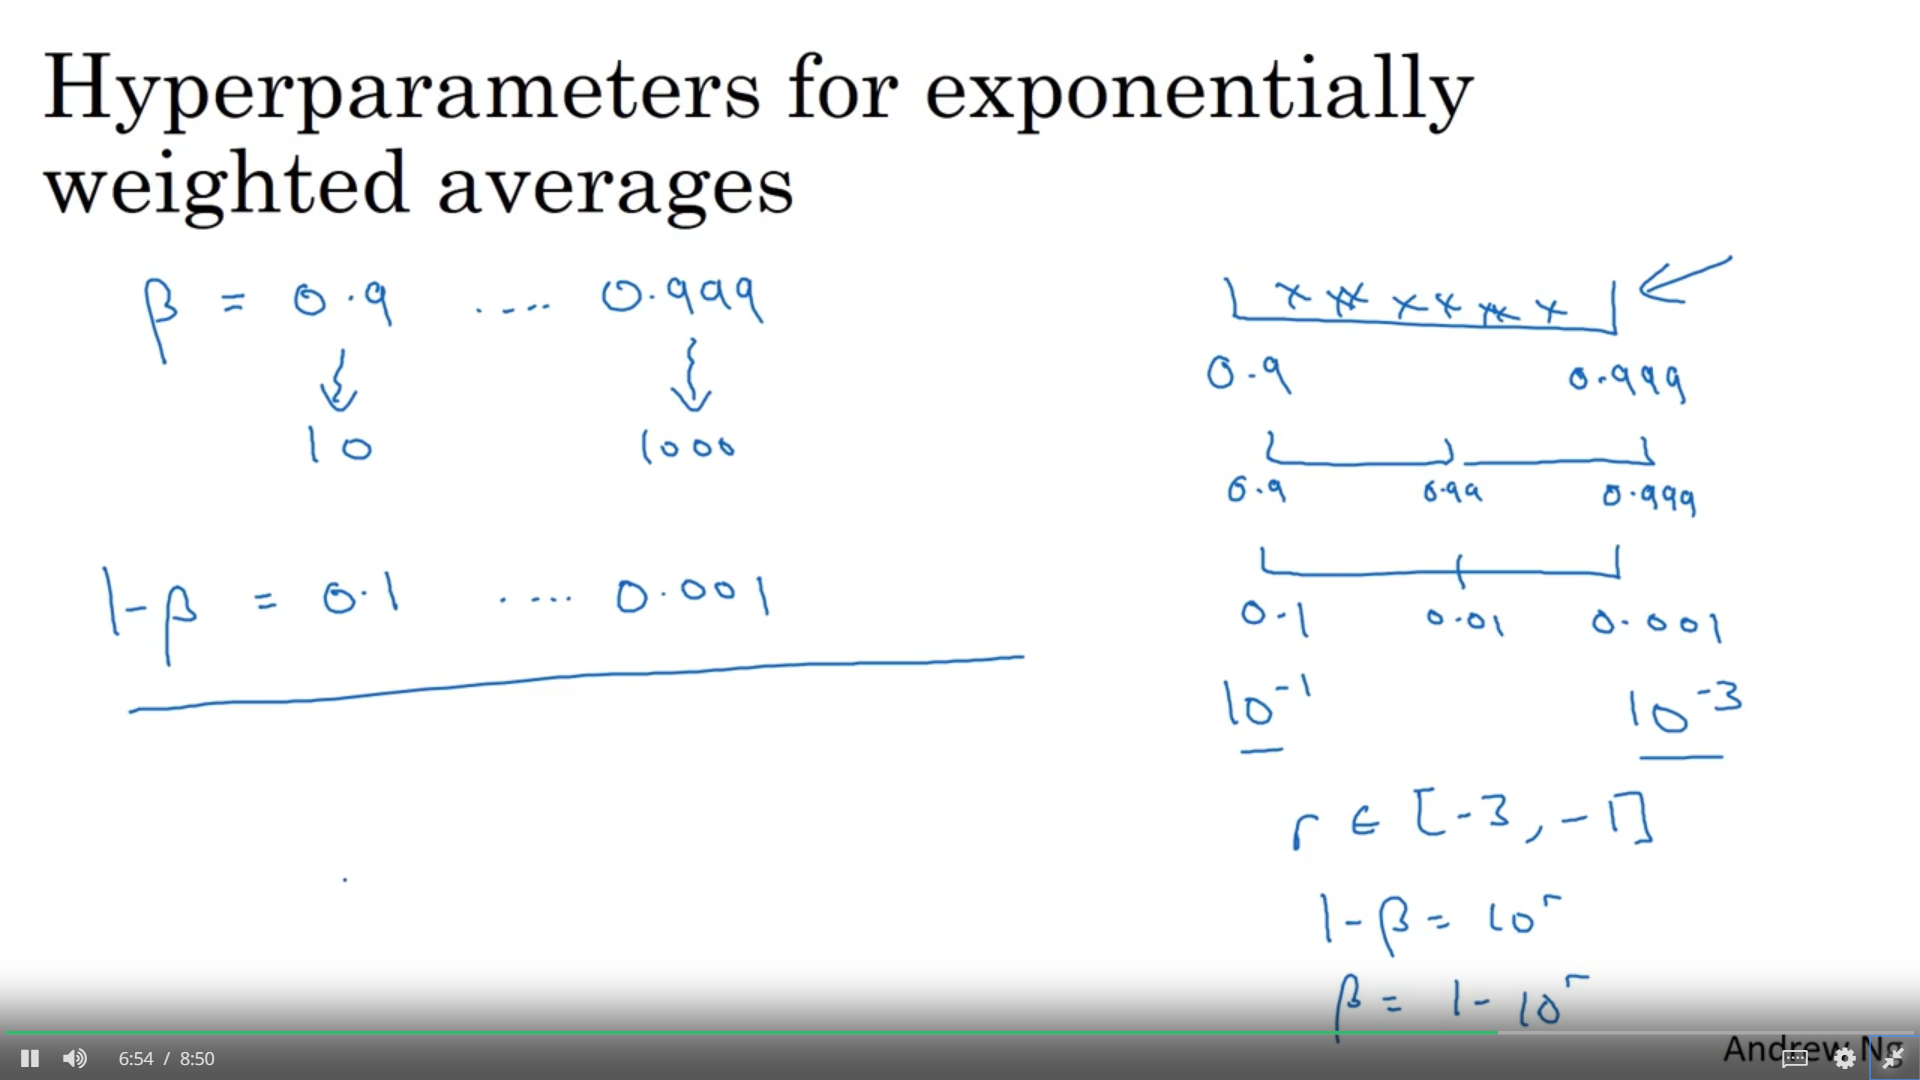 Hyperparameters for exponentially
weighted averages
β = 0.9 .... 0.999
10 1000
1-β = 0.1 .... 0.001
0.9 0.999
0.9 0.99 0.999
0.1 0.01 0.001
10⁻¹ 10⁻³
r ∈ [-3, -1]
1-β = 10ʳ
β = 1-10ʳ
6:54 / 8:50
Andrew Ng